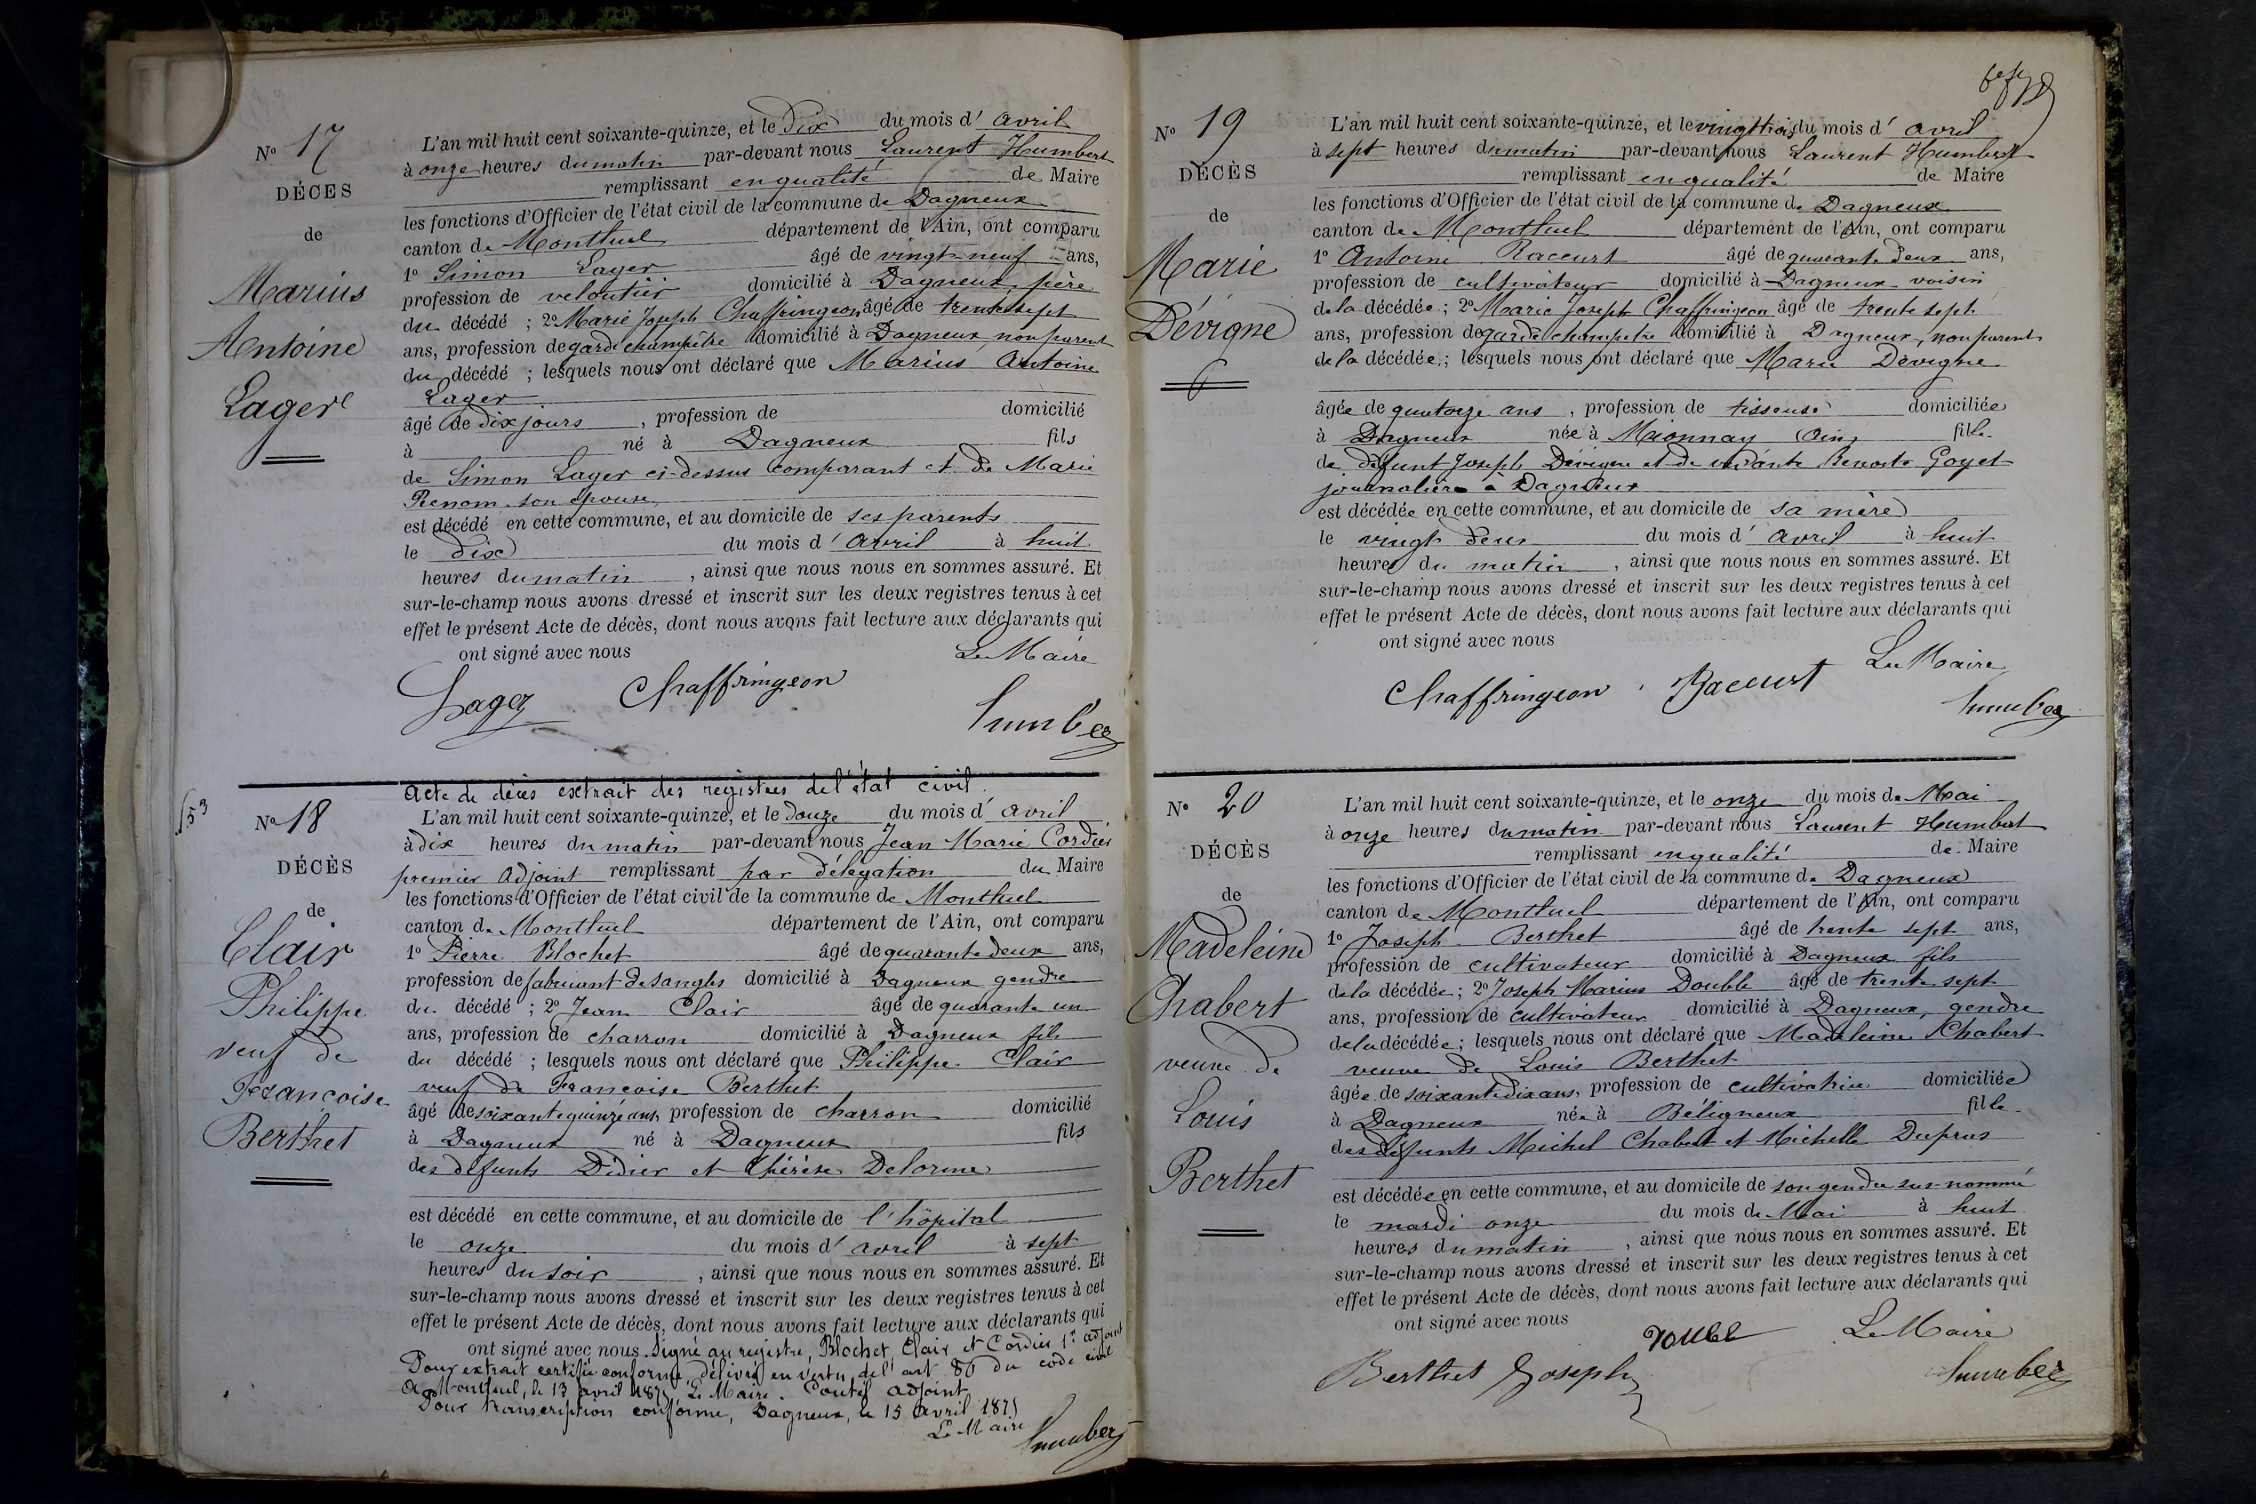 Nº 17
DÉCES
de
Marius
Antoine
Lager
L'an mil huit cent soixante-quinze, et le dix du mois d' avril
à onze heures du matin par-devant nous Laurent Humbert
remplissant en qualité de Maire
les fonctions d'Officier de l'état civil de la commune de Dagneux
canton de Montluel département de l'Ain, ont comparu
1º Simon Lager âgé de vingt-neuf ans,
profession de veloutier domicilié à Dagneux, père
du décédé ; 2º Marie Joseph Chaffringeon âgé de trente sept
ans, profession de garde champêtre domicilié à Dagneux non parent
du décédé ; lesquels nous ont déclaré que Marius Antoine
Lager
âgé de dix jours , profession de domicilié
à né à Dagneux fils
de Simon Lager ci-dessus comparant et de Marie
Renom son épouse
est décédé en cette commune, et au domicile de ses parents
le dix du mois d' avril à huit
heures du matin , ainsi que nous nous en sommes assuré. Et
sur-le-champ nous avons dressé et inscrit sur les deux registres tenus à cet
effet le présent Acte de décès, dont nous avons fait lecture aux déclarants qui
ont signé avec nous
Le Maire
Lager Chaffringeon
Humbert
153
Acte de décès extrait des registres de l'état civil.
Nº 18
DÉCÈS
de
Clair
Philippe
veuf de
Françoise
Berthet
L'an mil huit cent soixante-quinze, et le douze du mois d' avril
à dix heures du matin par-devant nous Jean Marie Cordier
premier adjoint remplissant par délégation du Maire
les fonctions d'Officier de l'état civil de la commune de Montluel
canton de Montluel département de l'Ain, ont comparu
1º Pierre Blochet âgé de quarante deux ans,
profession de fabricant de sangles domicilié à Dagneux gendre
du décédé ; 2º Jean Clair âgé de quarante un
ans, profession de charron domicilié à Dagneux fils
du décédé ; lesquels nous ont déclaré que Philippe Clair
veuf de Françoise Berthet
âgé de soixante quinze ans, profession de charron domicilié
à Dagneux né à Dagneux fils
des défunts Didier et Thérèse Delorme
est décédé en cette commune, et au domicile de l'hôpital
le onze du mois d' avril à sept
heures du soir , ainsi que nous nous en sommes assuré. Et
sur-le-champ nous avons dressé et inscrit sur les deux registres tenus à cet
effet le présent Acte de décès, dont nous avons fait lecture aux déclarants qui
ont signé avec nous. Signé au registre, Blochet, Clair et Cordier 1er adjoint
Pour extrait certifié conforme, délivré en vertu de l'art 80 du code civil
A Montluel, le 13 avril 1875 Le Maire. adjoint
Pour transcription conforme, Dagneux, le 15 avril 1875
Le Maire
Humbert
Nº 19
DÉCÈS
de
Marie
Dévigne
L'an mil huit cent soixante-quinze, et le vingt trois du mois d' avril
à sept heures du matin par-devant nous Laurent Humbert
remplissant en qualité de Maire
les fonctions d'Officier de l'état civil de la commune de Dagneux
canton de Montluel département de l'Ain, ont comparu
1º Antoine Raccurt âgé de quarante deux ans,
profession de cultivateur domicilié à Dagneux voisin
de la décédée ; 2º Marie Joseph Chaffringeon âgé de trente sept
ans, profession de garde champetre domicilié à Dagneux, non parent
de la décédée ; lesquels nous ont déclaré que Marie Dévigne
âgée de quatorze ans , profession de tisseuse domiciliée
à Dagneux née à Mionnay (Ain) fille
de défunt Joseph Dévigne et de vivante Benoite Goyet
journalière à Dagneux
est décédée en cette commune, et au domicile de sa mère
le vingt deux du mois d' avril à huit
heures du matin , ainsi que nous nous en sommes assuré. Et
sur-le-champ nous avons dressé et inscrit sur les deux registres tenus à cet
effet le présent Acte de décès, dont nous avons fait lecture aux déclarants qui
ont signé avec nous
Le Maire
Chaffringeon Raccurt
Humbert
Nº 20
DÉCÈS
de
Madeleine
Chabert
veuve de
Louis
Berthet
L'an mil huit cent soixante-quinze, et le onze du mois de Mai
à onze heures du matin par-devant nous Laurent Humbert
remplissant en qualité de Maire
les fonctions d'Officier de l'état civil de la commune de Dagneux
canton de Montluel département de l'Ain, ont comparu
1º Joseph Berthet âgé de trente sept ans,
profession de cultivateur domicilié à Dagneux fils
de la décédée ; 2º Joseph Marius Double âgé de trente sept
ans, profession de cultivateur domicilié à Dagneux, gendre
de la décédée ; lesquels nous ont déclaré que Madeleine Chabert
veuve de Louis Berthet
âgée de soixante dix ans, profession de cultivatrice domiciliée
à Dagneux née à Béligneux fille
des défunts Michel Chabert et Michelle Dupras
est décédée en cette commune, et au domicile de son gendre sus-nommé
le mardi onze du mois de Mai à huit
heures du matin , ainsi que nous nous en sommes assuré. Et
sur-le-champ nous avons dressé et inscrit sur les deux registres tenus à cet
effet le présent Acte de décès, dont nous avons fait lecture aux déclarants qui
ont signé avec nous
Double Le Maire
Berthet Joseph Humbert